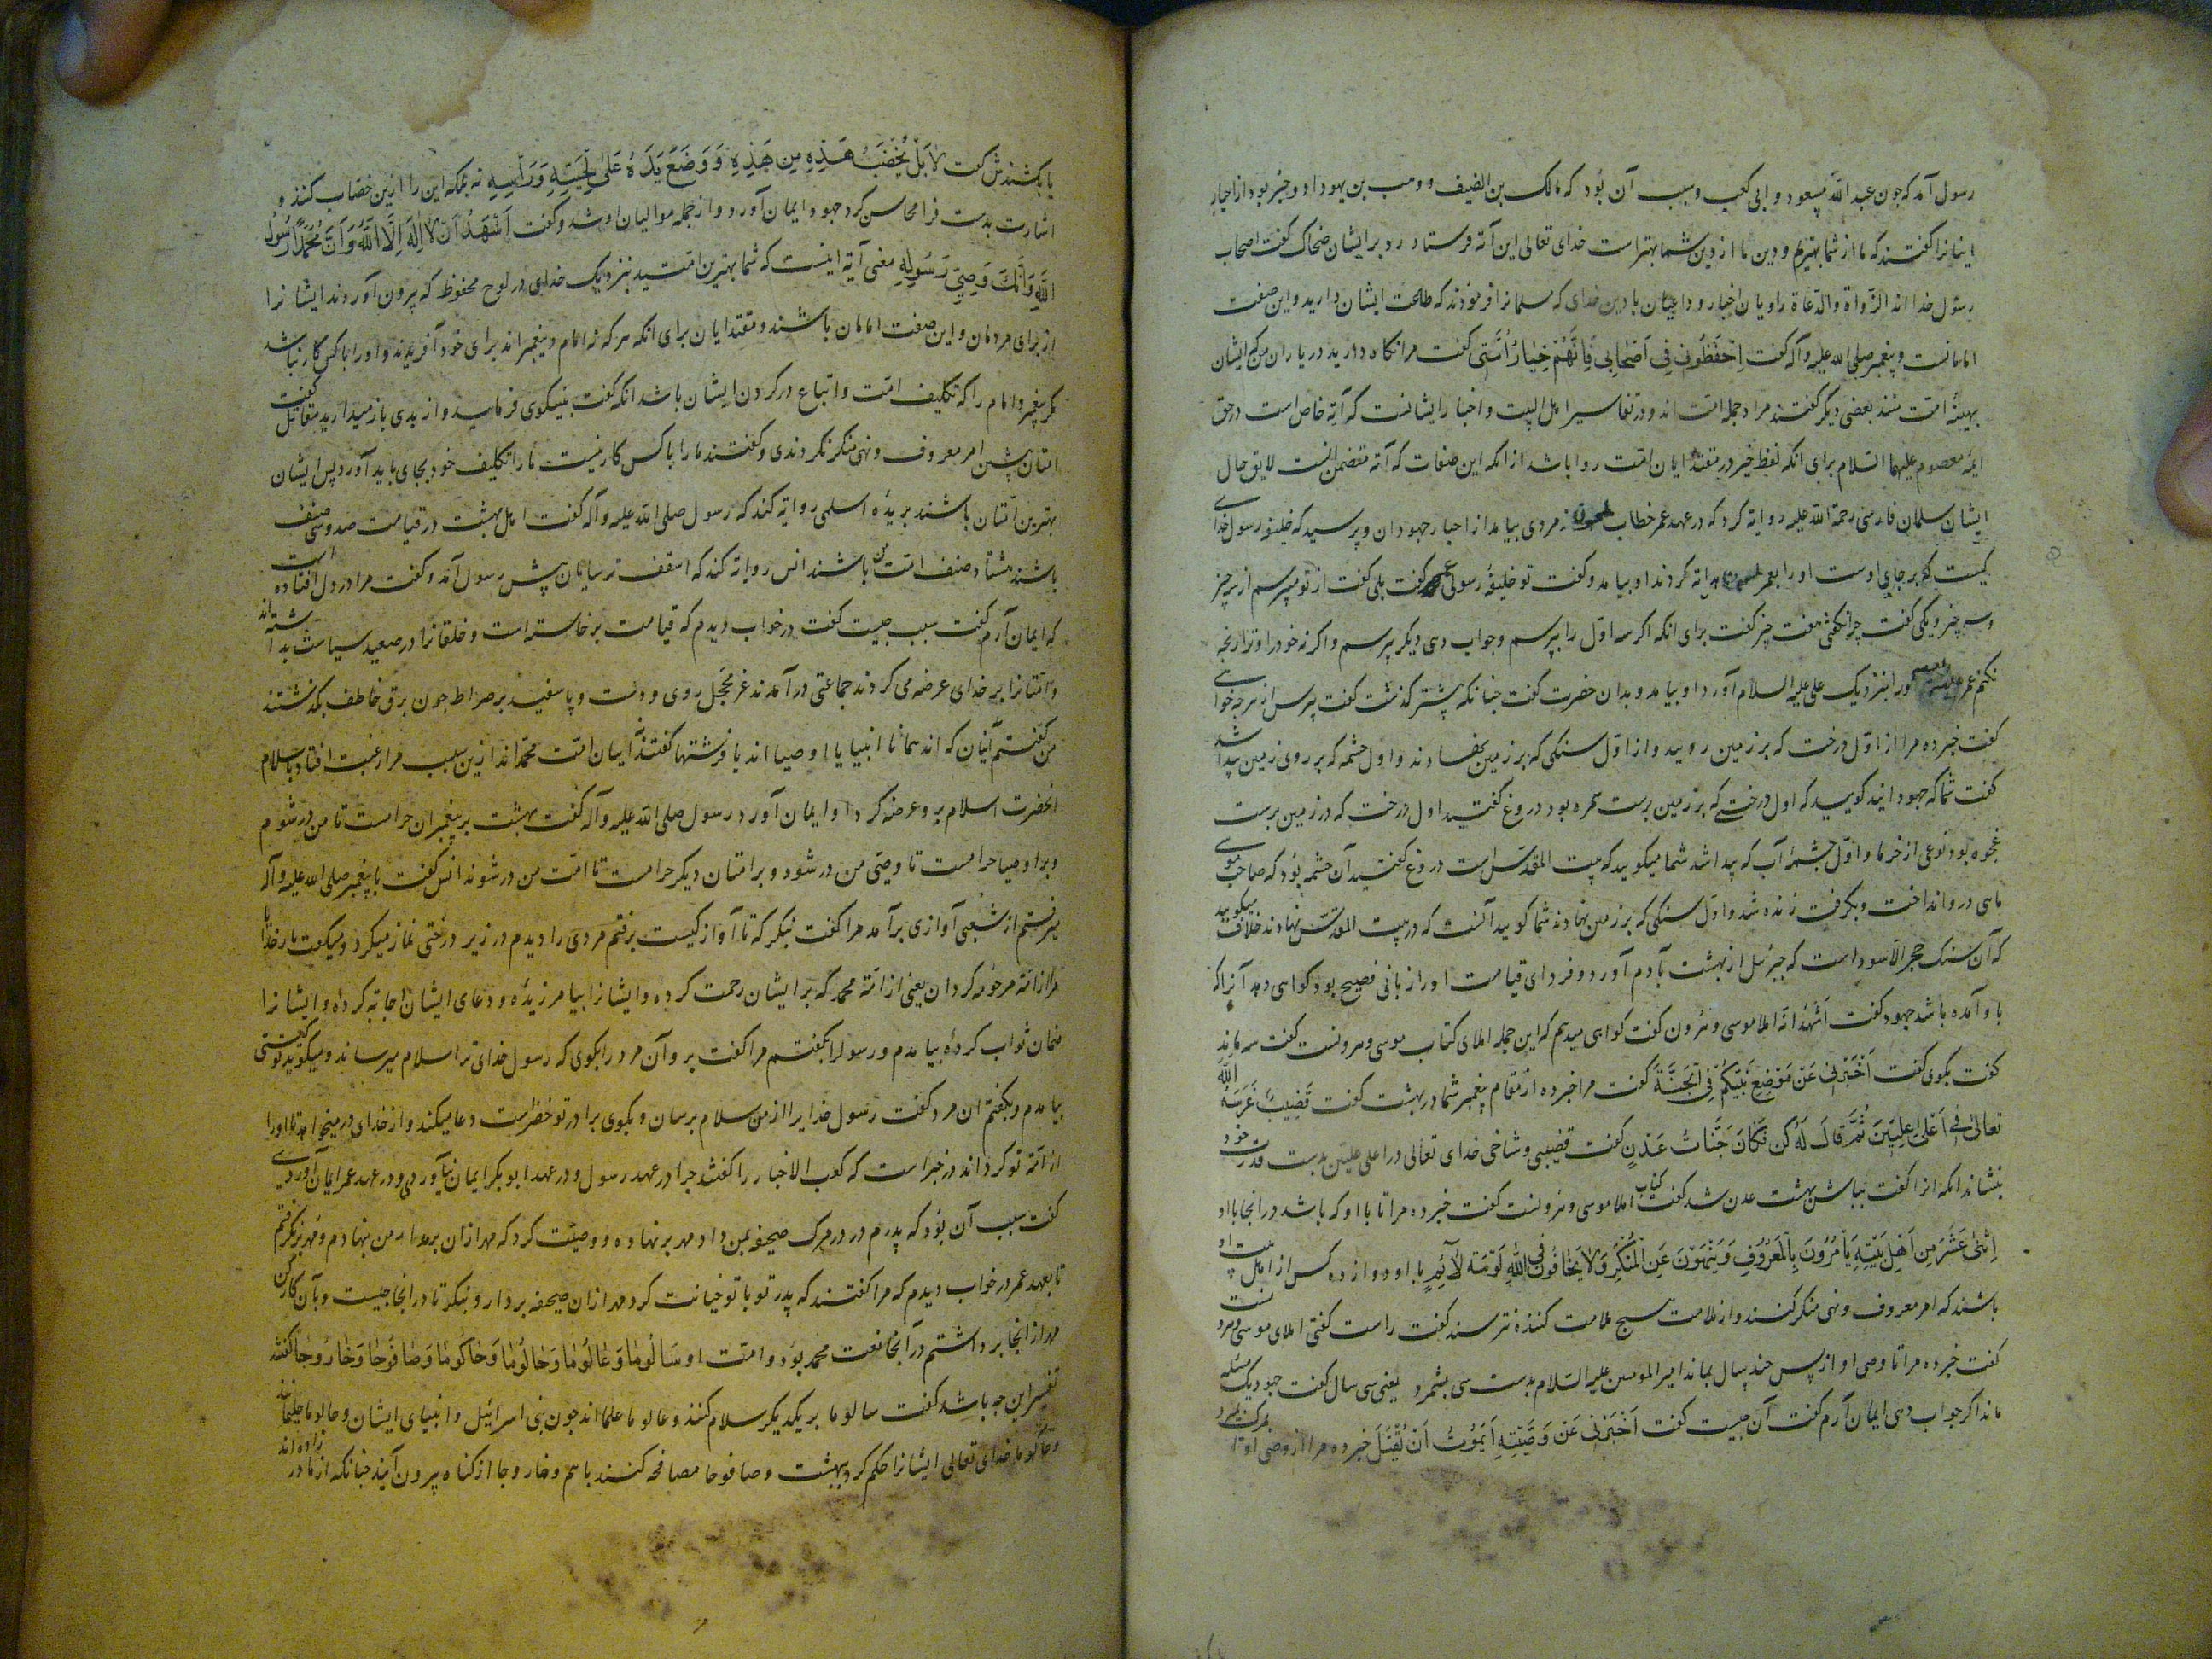 رسول آمد که چون عبد الله مسعود و ابی کعب و سبب آن بود که مالک بن الضیف و وهب بن یهودا دو حبر بود از احبار
ایشانرا گفتند که ما از شما بهتریم و دین ما از دین شما بهتر است خدای تعالی این آیه فرستاد رد بر ایشان ضحاک گفت اصحاب
رسول خدا اند الرواة والدعاة راویان اخبار و داعیان با دین خدای که مسلمانرا فرمودند که طاعت ایشان دارید و این صفت
امامانست و پیغمبر صلی الله علیه و آله گفت اِحْفَظُونی فِی اَصْحابی فَاِنَّهُمْ خِیارُ اُمَّتی گفت مرا نگاه دارید در یاران من که ایشان
بهینۀ امت منند بعضی دیگر گفتند مراد جمله امت اند و در تفاسیر اهل البیت و اخبار ایشانست که آیه خاص است در حق
ایمه معصوم علیهما السلام برای انکه لفظ خیر در مقتدایان امت روا باشد از انکه این صفات که آیه متضمن انست لایق حال
ایشان سلمان فارسی رحمة الله علیه روایه کرد که در عهد عمر خطاب مردی بیامد از احبار جهودان و پرسید که خلیفه رسول خدای
کیست که بر جای اوست او را بعمر کردند او بیامد و گفت تو خلیفۀ رسولی گفت بلی گفت از تو میپرسم از سه چیز
و سه چیز و یکی گفت چرا نگفتی هفت چیز گفت برای انکه اکر سه اول را بپرسم و جواب دهی دیگر بپرسم و اکر نه خود را و ترا رنجه
نکنم عمر او را بنزدیک علی علیه السلام آورد او بیامد و بدان حضرت گفت چنانکه پیشتر گذشت گفت بپرس از هر چه خواهی
گفت خبر ده مرا از اول درخت که بر زمین رویید و از اول سنگی که بر زمین بنهادند و اول چشمه که بر روی زمین پیدا شد
گفت شما که جهودانید گویید که اول درختی که بر زمین برست سمره بود دروغ گفتید اول درخت که در زمین برست
عجوه بود نوعی از خرما و اول چشمۀ آب که پیدا شد شما میگویید که بیت المقدس است دروغ گفتید آن چشمه بود که صاحب موسی
ماهی در وانداخت و بگرفت زنده شد و اول سنگی که بر زمین نهادند شما گویید آنست که در بیت المقدس نهادند خلاف میگویید
که آن سنگ حجر الاسود است که جبرئیل از بهشت با آدم آورد و فردای قیامت او را زبانی فصیح بود گواهی دهد آنرا که
با او آمده باشد جهود گفت اَشْهَدُ انّه املا موسی و هرون گفت گواهی میدهم که این جمله املای کتاب موسی و هرونست گفت سه ماند
گفت بگوی گفت اَخْبِرْنِی عَنْ مَوْضِعِ نَبِیِّکُمْ فِی الْجَنَّةِ گفت مرا خبر ده از مقام پیغمبر شما در بهشت گفت قَضیبٌ غَرَسَهُ اللّٰهُ
تعالی فِی اَعْلی عِلِّیّینَ ثُمَّ قالَ لَهُ کُن فَکانَ جَنّاتُ عَدْنٍ گفت قضیبی و شاخی خدای تعالی در اعلی علیین بدست قدرت خود
بنشاند انکه انرا گفت بباش بهشت عدن شد گفت کتاب املا موسی و هرونست گفت خبر ده مرا تا با او که باشد در انجا با او
اِثْنی عَشَرَ مِن اَهْلِ بَیْتِهِ یَاْمُرُونَ بِالْمَعْرُوفِ وَیَنْهَوْنَ عَنِ الْمُنْکَرِ وَلا یَخافُونَ فِی اللّٰهِ لَوْمَةَ لائِمٍ با او دوازده کس از اهل بیت او
باشند که امر معروف و نهی منکر کنند و از ملامت هیچ ملامت کننده نترسند گفت راست گفتی املای موسی و هرونست
گفت خبر ده مرا تا وصی او از پس چند سال بماند امیر المومنین علیه السلام بدست سی بشمرد یعنی سی سال گفت جهود یک مسئله
ماند اگر جواب دهی ایمان آرم گفت آن چیست گفت اَخْبِرْنی عَنْ وَصِیَّتِهِ اَیَمُوتُ اَنْ یُقْتَلَ خبر ده مرا از وصی او تا بمرگ بمیرد
یا بکشندش گفت لا بَلْ یُخْضَبُ هَذِهِ مِن هَذِهِ وَوَضَعَ یَدَهُ عَلی لِحْیَتِهِ وَرَأسِهِ نه بلکه این را ازین خضاب کنند و
اشارت بدست فرا محاسن کرد جهود ایمان آورد و از جمله موالیان او شد و گفت اَشْهَدُ اَنْ لا اِلهَ اِلَّا اللّٰهُ وَاَنَّ مُحَمَّدًا رَسُولُ
اللّٰهِ وَاَنَّکَ وَصِیُّ رَسُولِهِ معنی آیه اینست که شما بهترین امتید بنزدیک خدای در لوح محفوظ که بیرون آوردند ایشانرا
از برای مردمان و این صفت امامان باشند و مقتدایان برای انکه هر که نه امام و پیغمبراند برای خود آفریدند و او را با کس کار نباشد
مگر پیغمبر و امام را که تکلیف امت و اتباع در گردن ایشان باشد انکه گفت بنیکوی فرمایید و از بدی باز میدارید مقاتل گفت
امتان پیشین امر معروف و نهی منکر نکردندی و گفتند ما را با کس کار نیست ما را تکلیف خود بجای باید آورد پس ایشان
بهترین امتان باشند بریدۀ اسلمی روایه کند که رسول صلی الله علیه و آله گفت اهل بهشت در قیامت صد و سی صنف
باشند هشتاد صنف امت من باشند انس روایه کند که اسقف ترسایان پیش رسول آمد و گفت مرا در دل افتاده است
که ایمان آرم گفت سبب چیست گفت در خواب دیدم که قیامت برخاسته است و خلقانرا در صعید سیاست بداشته اند
و امتانرا بر خدای عرضه می کردند جماعتی در آمدند غر محجل روی و دست و پا سفید بر صراط چون برق خاطف بگذشتند
من گفتم اینان که اند همانا انبیا یا اوصیا اند یا فرشتها گفتند اینان امت محمد اند ازین سبب مرا رغبت افتاد باسلام
انحضرت اسلام برو عرضه کرد او ایمان آورد رسول صلی الله علیه و آله گفت بهشت بر پیغمبران حرامست تا من در شوم
و بر اوصیا حرامست تا وصی من در شود و بر امتان دیگر حرامست تا امت من در شوند انس گفت با پیغمبر صلی الله علیه و آله
میرفتم از شعبی آوازی بر آمد مرا گفت بنگر که تا آواز کیست برفتم مردی را دیدم در زیر درختی نماز میکرد و میگفت بار خدایا
مرا از امة مرحومه گردان یعنی از امة محمد که بر ایشان رحمت کرده و ایشانرا بیامرزیده و دعای ایشان اجابة کرده و ایشانرا
ضمان ثواب کرده بیامدم و رسولرا بگفتم مرا گفت برو آن مرد را بگوی که رسول خدای ترا سلام میرساند و میگوید تو کیستی
بیامدم و بگفتم ان مرد گفت رسول خدایرا از من سلام برسان و بگوی برادر تو خضر است دعا میکند و از خدای در میخواهد تا او را
از امة تو کرداند در خبر است که کعب الاخبار را گفتند چرا در عهد رسول و در عهد ابو بکر ایمان نیاوردی و در عهد عمر ایمان آوردی
گفت سبب آن بود که پدرم در در مرگ صحیفه بمن داد مهر بر نهاده و وصیت کرد که مهر از ان برمدار من بنهادم و مهر برنگرفتم
تا بعهد عمر در خواب دیدم که مرا گفتند که پدر تو با تو خیانت کرد مهر از ان صحیفه بردار و بنگر تا در انجا چیست و بآن کار کن
مهر از انجا برداشتم در آنجا نعت محمد بود و امت او سَالُومَا وَعَالُومَا وَحَالُومَا وَحَاکُومَا وَصَافُوحَا وَخَارُوجَا گفتند
تفسیر این چه باشد گفت سالوما بر یکدیگر سلام کنند و عالوما علما اند چون بنی اسرائیل و انبیای ایشان و حالوما حلیمانند
و حاکوما خدای تعالی ایشانرا حکم کرد بهشت و صافوحا مصافحه کنند باهم و خاروجا از گناه بیرون آیند چنانکه از مادر زاده اند